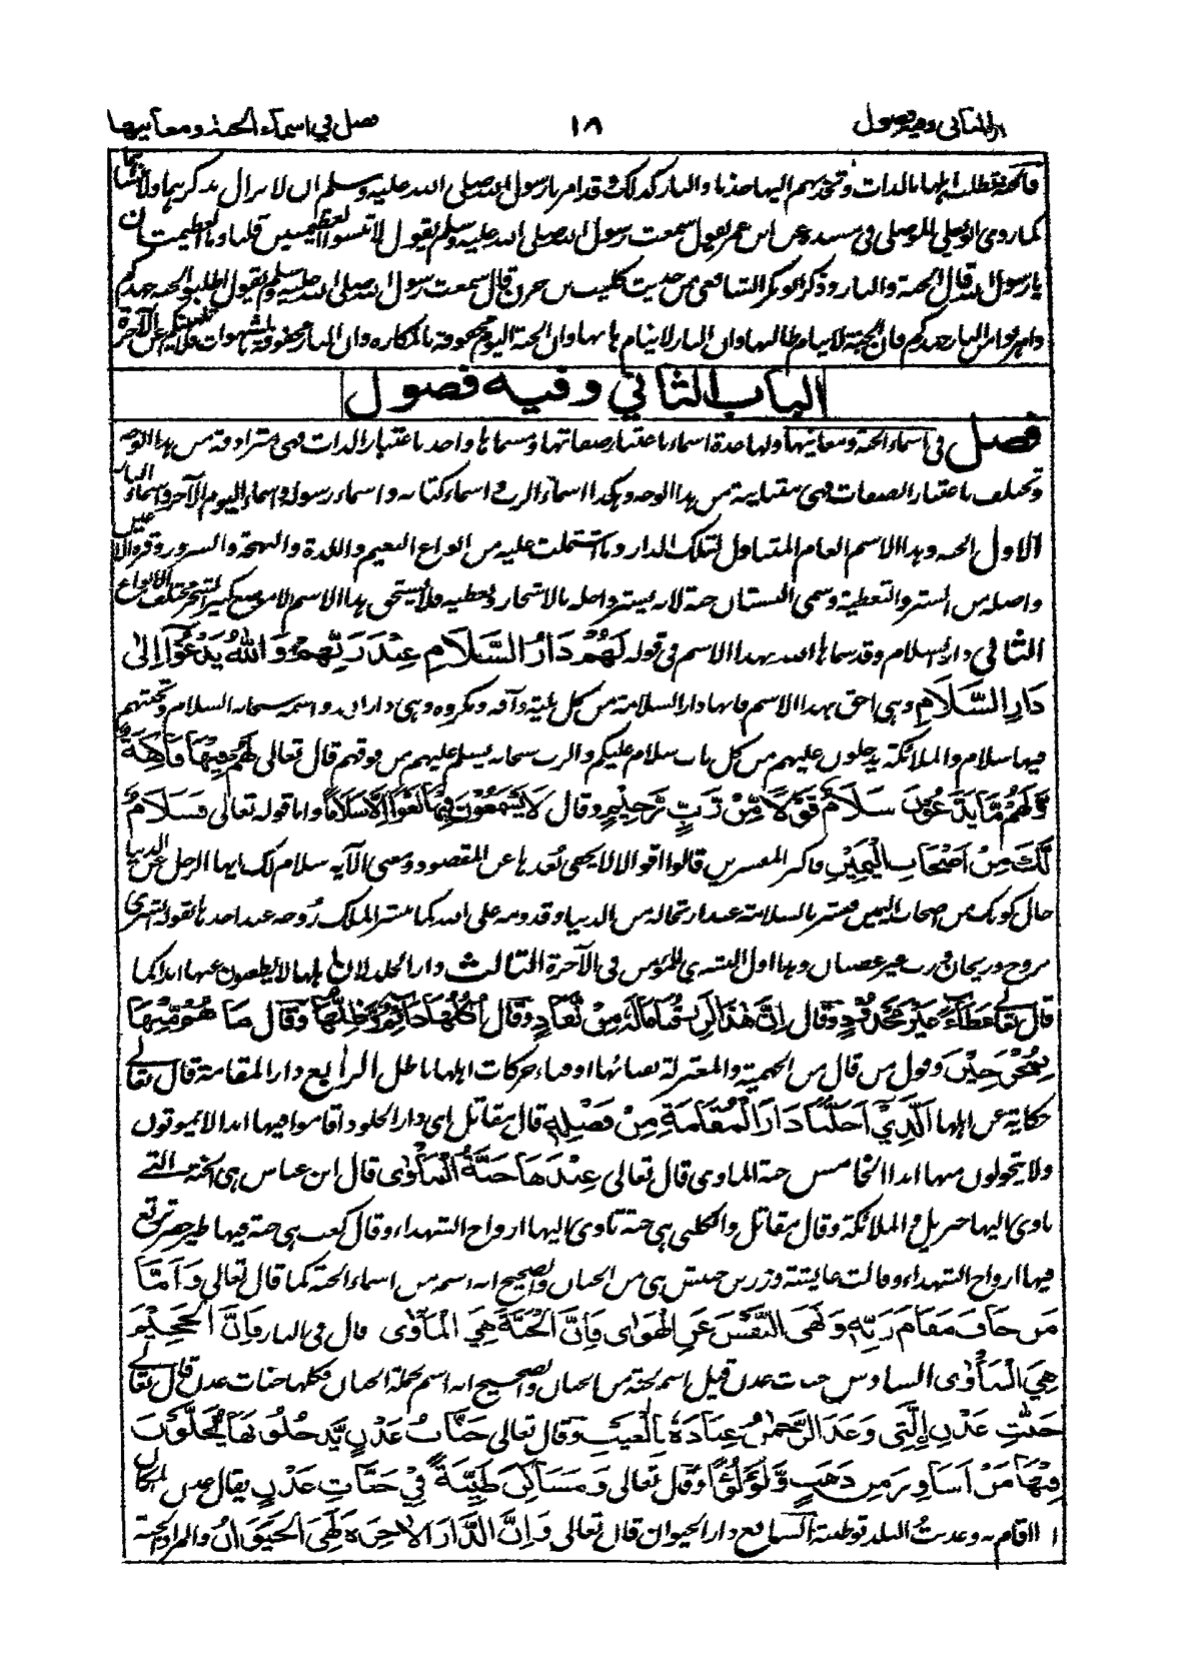 الباب الثاني وفيه فصول ١٨ فصل في اسماء الجنة ومعانيها
فالجنة تطلب اهلها بالذات وتجذبهم اليها جذبا والنار كذلك وقد امرنا رسول الله صلى الله عليه وسلم ان لا نزال نذكرهما ولا ننساهما
كما روى ابو يعلى الموصلي في مسنده عن ابن عمر يقول سمعت رسول الله صلى الله عليه وسلم يقول لا تنسوا العظيمتين قلنا وما العظيمتان
يا رسول الله قال الجنة والنار وذكر ابو بكر الشافعي من حديث كليب بن حرب قال سمعت رسول الله صلى الله عليه وسلم يقول اطلبوا الجنة جهدكم
واهربوا من النار جهدكم فان الجنة لا ينام طالبها وان النار لا ينام هاربها وان الجنة اليوم محفوفة بالمكاره وان النار محفوفة بالشهوات فلا تلهينكم عن الآخرة
الباب الثاني وفيه فصول
فصل في اسماء الجنة ومعانيها ولها عدة اسماء باعتبار صفاتها ومسماها واحد باعتبار الذات فهي مترادفة من هذا الوجه
وتختلف باعتبار الصفات فهي متباينة من هذا الوجه وهكذا اسماء الرب واسماء كتابه واسماء رسوله واسماء اليوم الآخر واسماء النار
الاول الجنة وهذا الاسم العام المتناول لتلك الدار وما اشتملت عليه من انواع النعيم واللذة والبهجة والسرور وقرة الاعين
واصله من الستر والتغطية وسمي البستان جنة لانه يستر داخله بالاشجار ويغطيه فلا يستحق هذا الاسم الا موضع كثير الشجر مختلف الانواع
الثاني دار السلام وقد سماها الله بهذا الاسم في قوله لَهُمْ دَارُ السَّلَامِ عِنْدَ رَبِّهِمْ وَاللهُ يَدْعُوْا إِلىٰ
دَارِ السَّلَامِ وهي احق بهذا الاسم فانها دار السلامة من كل بلية وآفة ومكروه وهي دار الله واسمه سبحانه السلام وتحيتهم
فيها سلام والملائكة يدخلون عليهم من كل باب سلام عليكم والرب سبحانه يسلم عليهم من فوقهم قال تعالى لَهُمْ فِيْهَا فَاكِهَةٌ
وَّلَهُمْ مَّا يَدَّعُوْنَ سَلَامٌ قَوْلًا مِّنْ رَّبٍّ رَّحِيْمٍ وقال لَا يَسْمَعُوْنَ فِيْهَا لَغْوًا اِلَّا سَلَامًا واما قوله تعالى فَسَلَامٌ
لَّكَ مِنْ اَصْحَابِ الْيَمِيْنِ فاكثر المفسرين قالوا اقوالا لا يخفى بُعدها عن المقصود ومعنى الآية سلام لك ايها الراحل عن الدنيا
حال كونك من اصحاب اليمين فيبشر بالسلامة عند ارتحاله من الدنيا وقدومه على الله كما يبشر الملك روحه عند اخذها بقوله ابشري
بروح وريحان ورب غير غضبان وهذا اول البشرى للمؤمن في الآخرة الثالث دار الخلد لان اهلها لا يظعنون عنها ابدا كما
قال تعالى عَطَاءً غَيْرَ مَجْذُوْذٍ وقال اِنَّ هٰذَا لَرِزْقُنَا مَا لَهٗ مِنْ نَّفَادٍ وقال اُكُلُهَا دَآئِمٌ وَّظِلُّهَا وقال مَا هُمْ مِّنْهَا
بِمُخْرَجِيْنَ وقول من قال من الجهمية والمعتزلة بفنائها او فناء حركات اهلها باطل الرابع دار المقامة قال تعالى
حكاية عن اهلها اَلَّذِيْ اَحَلَّنَا دَارَ الْمُقَامَةِ مِنْ فَضْلِهٖ قال مقاتل اي دار الخلود اقاموا فيها ابدا لا يموتون
ولا يتحولون منها ابدا الخامس جنة الماوى قال تعالى عِنْدَهَا جَنَّةُ الْمَأْوٰى قال ابن عباس هي الجنة التي
ياوي اليها جبريل والملائكة وقال مقاتل والكلبي هي جنة تاوي اليها ارواح الشهداء وقال كعب هي جنة فيها طير خضر ترتع
فيها ارواح الشهداء وقالت عايشة وزر بن حبيش هي من الجنان والصحيح انه اسم من اسماء الجنة كما قال تعالى وَاَمَّا
مَنْ خَافَ مَقَامَ رَبِّهٖ وَنَهَى النَّفْسَ عَنِ الْهَوٰى فَاِنَّ الْجَنَّةَ هِيَ الْمَأْوٰى قال في النار فَاِنَّ الْجَحِيْمَ
هِيَ الْمَأْوٰى السادس جنات عدن قيل اسم جنة من الجنان والصحيح انه اسم لجملة الجنان فكلها جنات عدن قال تعالى
جَنّٰتِ عَدْنٍ اِلَّتِي وَعَدَ الرَّحْمٰنُ عِبَادَهٗ بِالْغَيْبِ وقال تعالى جَنَّاتُ عَدْنٍ يَّدْخُلُوْنَهَا يُحَلَّوْنَ
فِيْهَا مِنْ اَسَاوِرَ مِنْ ذَهَبٍ وَّلُؤْلُؤًا وقال تعالى وَمَسَاكِنَ طَيِّبَةً فِيْ جَنَّاتِ عَدْنٍ يقال عدن بالمكان
اذا اقام به وعدنتُ البلد توطنته السابع دار الحيوان قال تعالى وَاِنَّ الدَّارَ الْاٰخِرَةَ لَهِيَ الْحَيَوَانُ والمراد الجنة